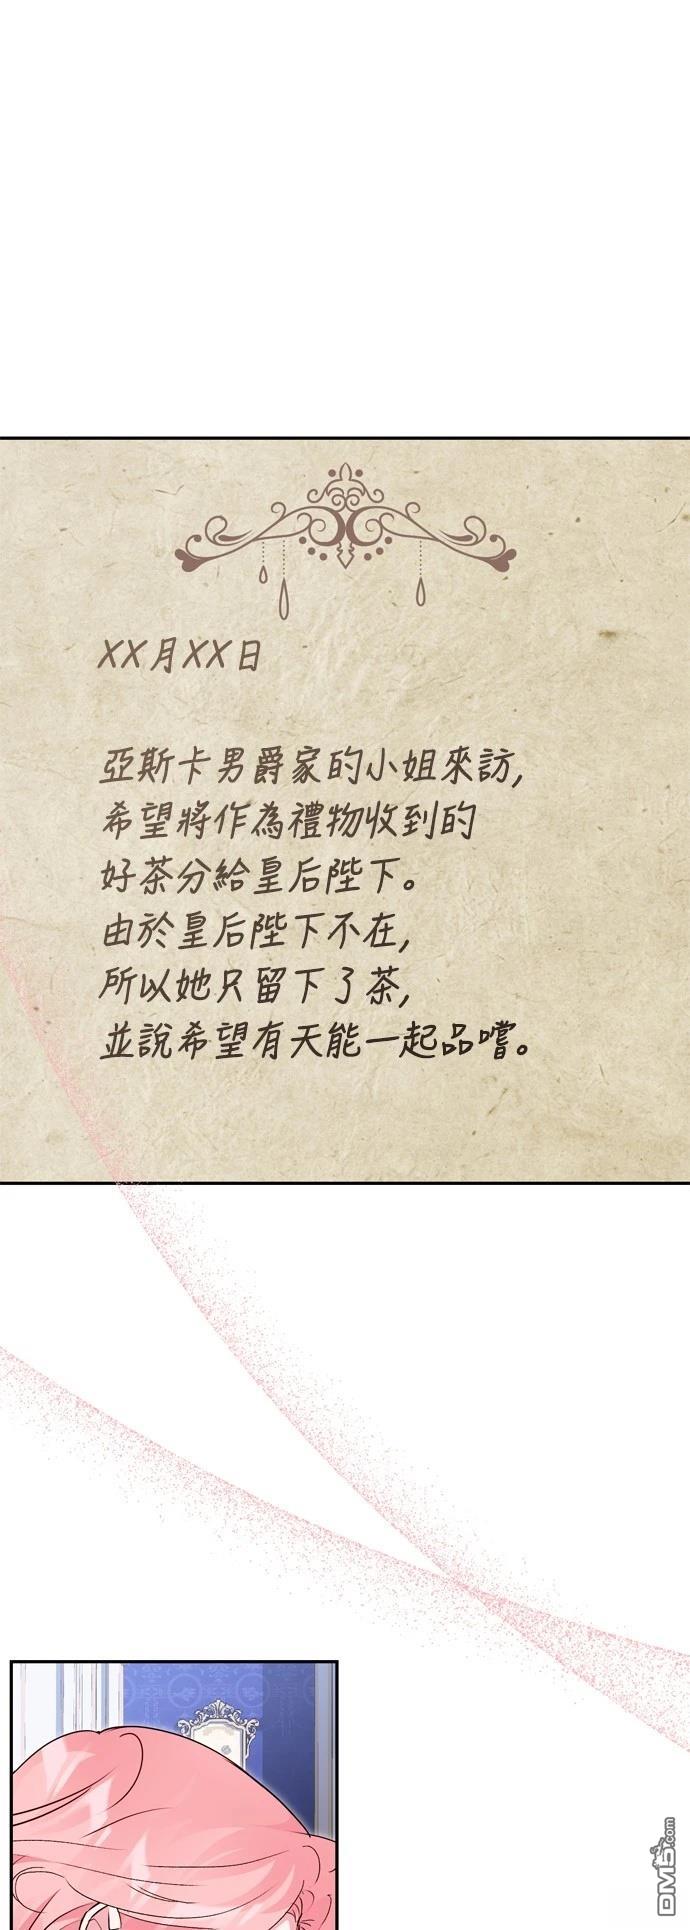 XX月XX日
亞斯卡男爵家的小姐來訪,
希望將作為禮物收到的
好茶分給皇后陛下。
由於皇后陛下不在,
所以她只留下了茶,
並說希望有天能一起品嚐。
DM5.com